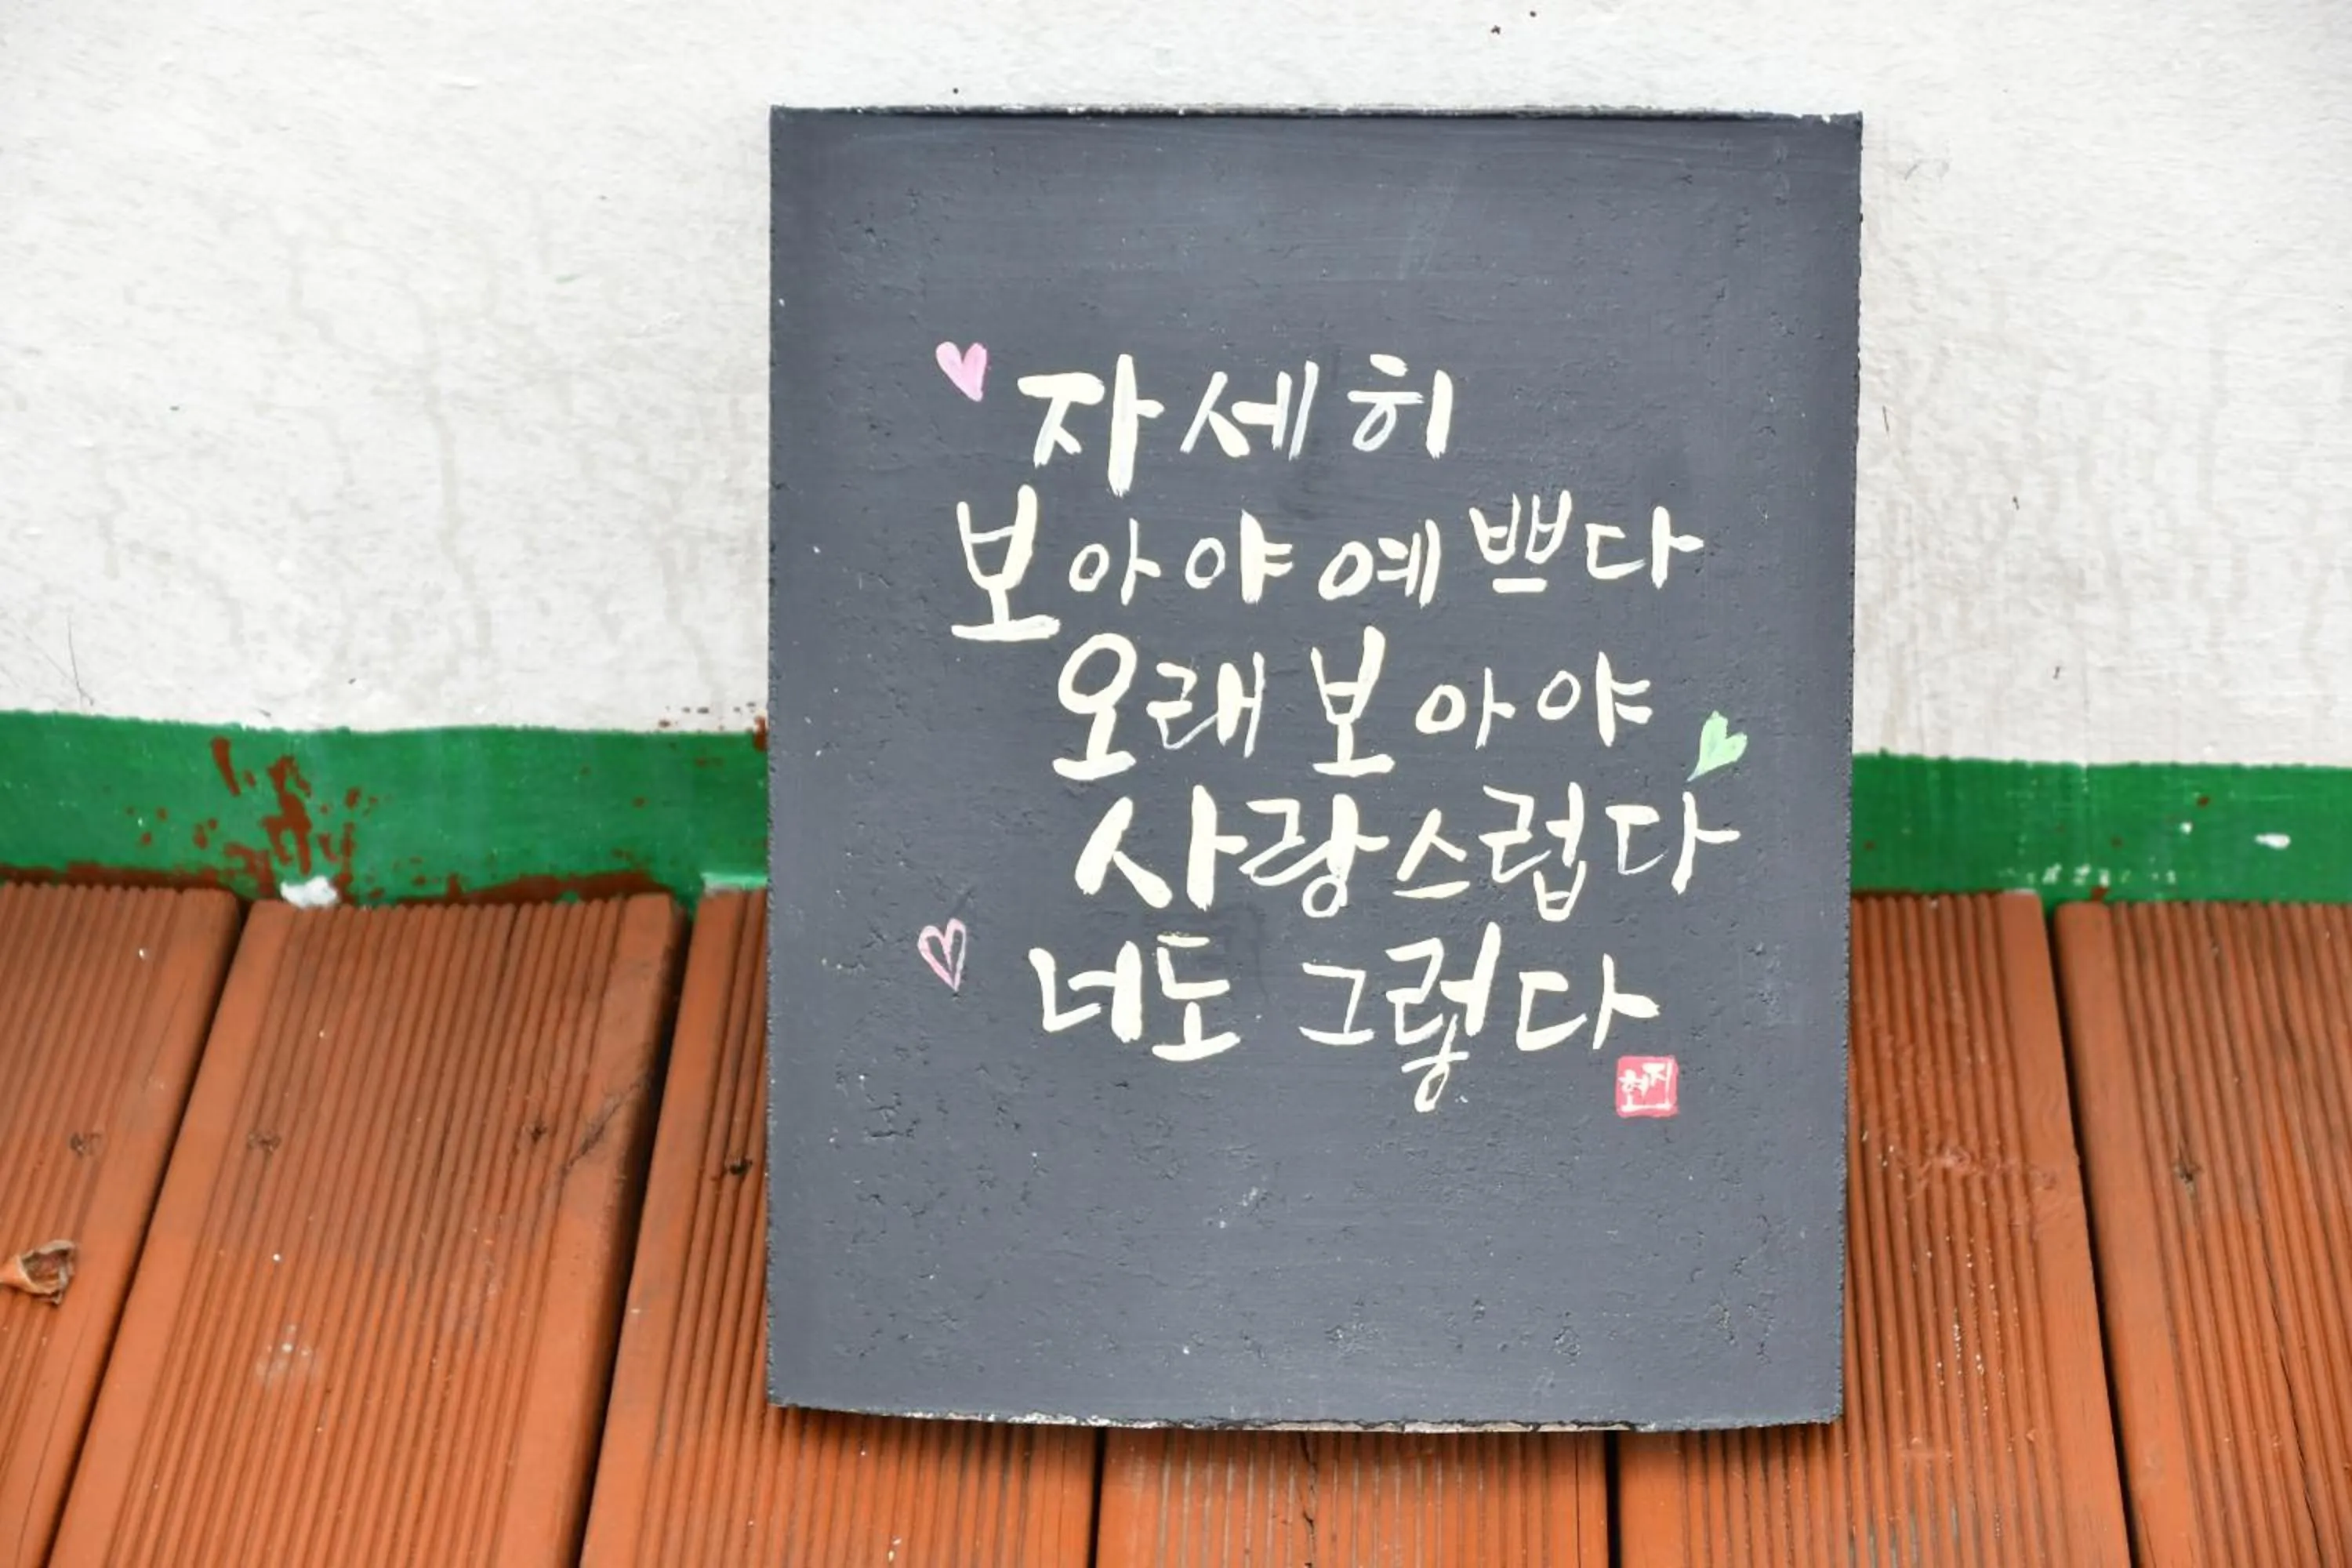 자세히
보아야 예쁘다
오래 보아야
사랑스럽다
너도 그렇다
현지